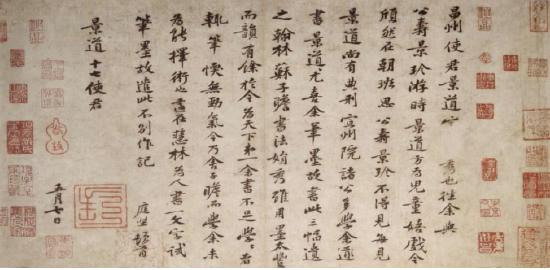 昌州使君景道宗秀也往余與
公壽景珍游時景道方為兒童嬉戲今
頎然在朝班思公壽景珍不得見每見
景道尚有典刑宣州院諸公多學余書
景道尤喜余筆墨故書此三幅遺
之翰林蘇子瞻書法娟秀雖用墨太豐
而韻有餘於今為天下第一余書不足學學者
輒筆愞無勁氣今乃舍子瞻而學余未
為能擇術也適在慧林為人書一文字試
筆墨故遣此不別作記庭堅頓首
景道十七使君
五月七日